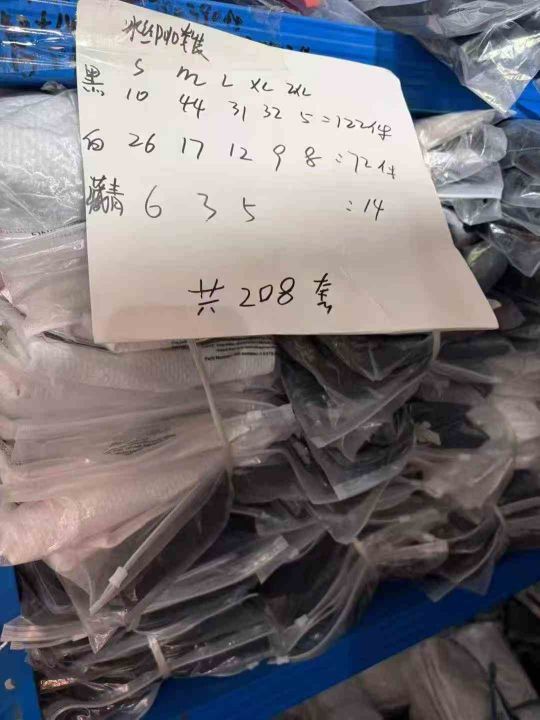 S M L XL 2XL
黑 10 44 31 32 5 = 122件
白 26 17 12 9 8 = 72件
藏青 6 3 5 = 14
共 208 套